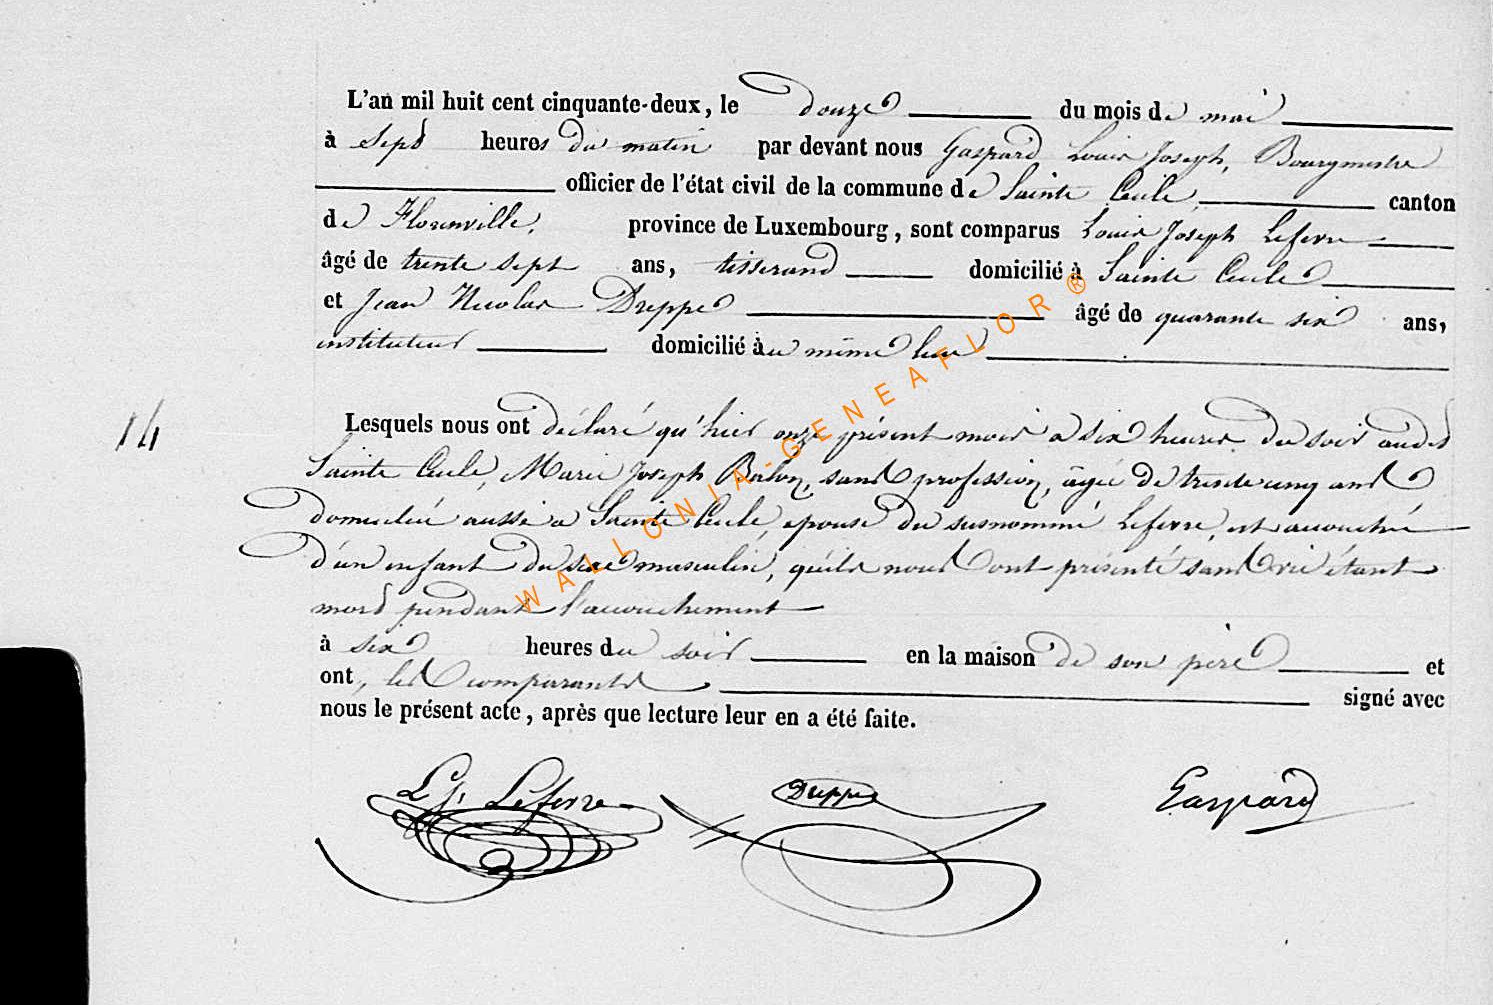 L'an mil huit cent cinquante-deux, le douze du mois de mai
à sept heures du matin par devant nous Gaspard Louis Joseph, Bourgmestre
officier de l'état civil de la commune de Sainte Cecile, canton
de Florenville, province de Luxembourg, sont comparus Louis Joseph Lefevre
âgé de trente sept ans, tisserand domicilié à Sainte Cecile
et Jean Nicolas Dreppe âgé de quarante six ans,
instituteur domicilié au même lieu
14
Lesquels nous ont déclaré qu'hier onze présent mois à six heures du soir audit
Sainte Cecile, Marie Joseph sans profession, âgée de trente cinq ans
domiciliée aussi à Sainte Cecile, épouse du susnommé Lefevre, est accouchée
d'un enfant du sexe masculin, qu'ils nous ont présenté sans vie étant
mort pendant l'accouchement
à six heures du soir en la maison de son père et
ont, les comparants signé avec
nous le présent acte, après que lecture leur en a été faite.
L J. Lefevre Dreppe Gaspard
WALLONIA-GENEAFLOR ®